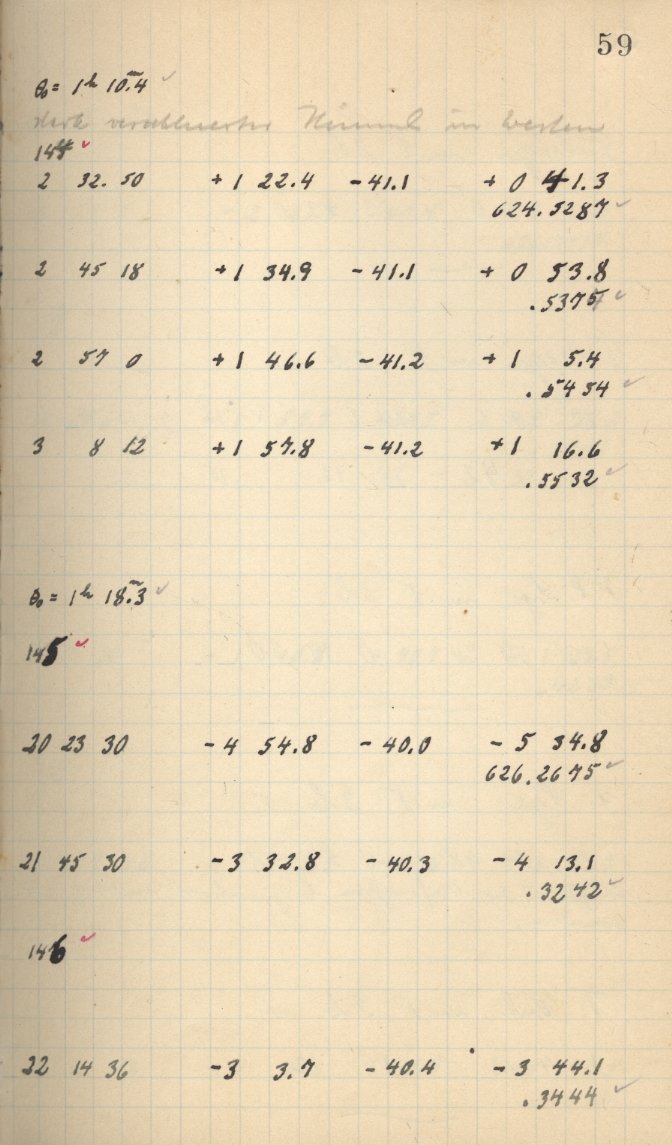 59
θ₀ = 1ʰ 10ᵐ.4 ✓
stark verschleierter Himmel im Westen
144 ✓
2 32. 50 +1 22.4 -41.1 + 0 41.3
624.5287 ✓
2 45 18 +1 34.9 -41.1 + 0 53.8
.5375 ✓
2 57 0 +1 46.6 -41.2 +1 5.4
.5454 ✓
3 8 12 +1 57.8 -41.2 +1 16.6
.5532 ✓
θ₀ = 1ʰ 18ᵐ.3 ✓
145 ✓
20 23 30 -4 54.8 -40.0 -5 34.8
626.2675 ✓
21 45 30 -3 32.8 -40.3 -4 13.1
.3242 ✓
146 ✓
22 14 36 -3 3.7 -40.4 -3 44.1
.3444 ✓